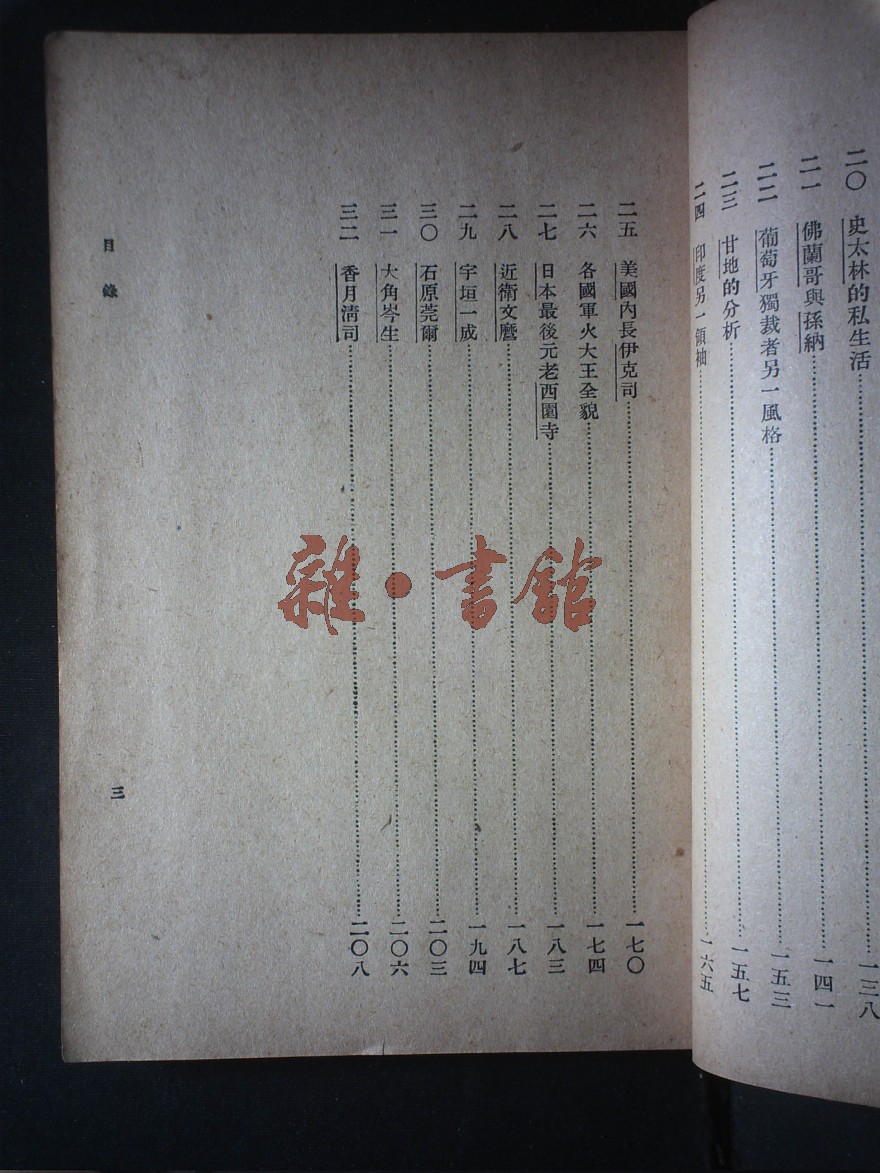 二〇 史太林的私生活 一三八
二一 佛蘭哥與孫納 一四一
二二 葡萄牙獨裁者另一風格 一五三
二三 甘地的分析 一五七
二四 印度另一領袖 一六五
二五 美國內長伊克司 一七〇
二六 各國軍火大王全貌 一七四
二七 日本最後元老西園寺 一八三
二八 近衛文麿 一八七
二九 宇垣一成 一九四
三〇 石原莞爾 二〇三
三一 大角岑生 二〇六
三二 香月清司 二〇八
目錄
三
雜·書館